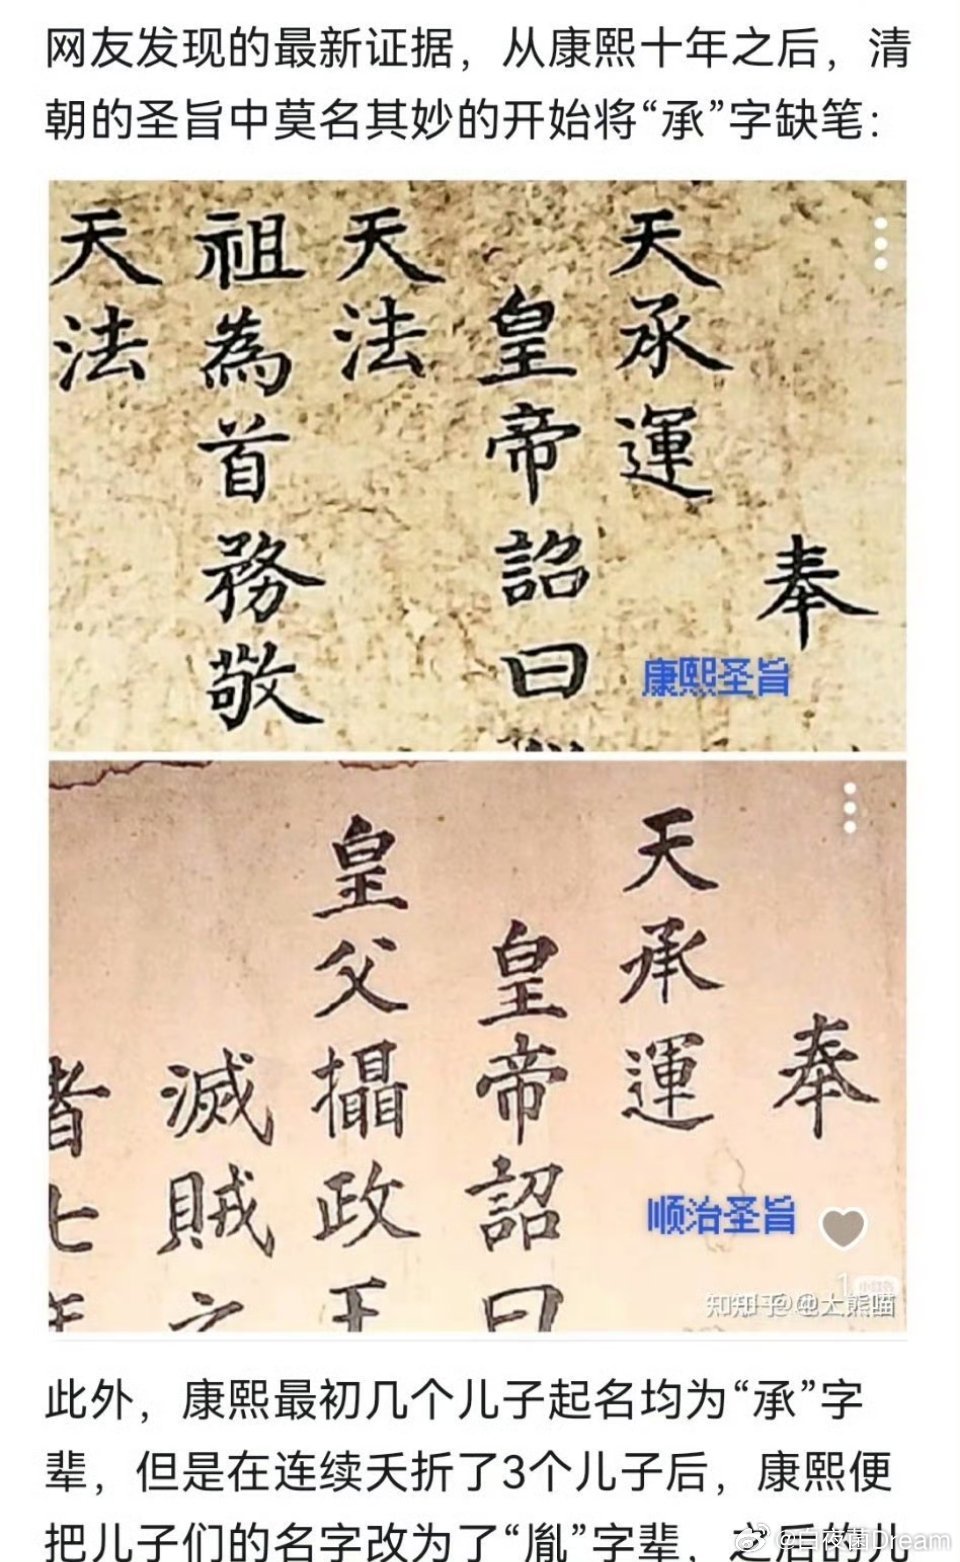 网友发现的最新证据，从康熙十年之后，清
朝的圣旨中莫名其妙的开始将“承”字缺笔：
奉
天承運
皇帝詔曰
天法
祖為首務敬
天法
康熙圣旨
奉
天承運
皇帝詔曰
皇父攝政王
滅賊之
者七年
顺治圣旨
知乎 @大熊喵
此外，康熙最初几个儿子起名均为“承”字
辈，但是在连续夭折了3个儿子后，康熙便
把儿子们的名字改为了“胤”字辈，之后的儿
@白夜菌Dream